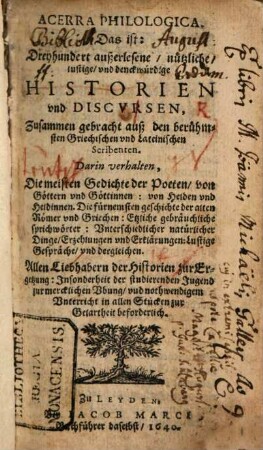 ACERRA PHILOLOGICA,
Das ist:
Dreyhundert außerlesene / nützliche/
lustige/ und denckwürdige
HISTORIEN
vnd DISCVRSEN,
Zusammen gebracht auß den berühm-
sten Griechischen vnd Lateinischen
Scribenten.
Darin verhalten,
Die meisten Gedichte der Poeten/ von
Göttern vnd Göttinnen: von Heiden vnd
Heidinnen. Die fürnemsten geschichte der alten
Römer vnd Griechen: Etzliche gebräuchliche
sprichwörter: Unterschiedlicher natürlicher
Dinge/ Erzehlungen und Erklärungen: Lustige
Gespräche/ vnd dergleichen.
Allen Liebhabern der Historien zur Er-
getzung: Insonderheit der studierenden Jugend
zur mercklichen Vbung/ vnd nothwendigem
Unterricht in allen Stücken zur
Gelartheit beforderlich.
BIBLIOTHECA
REGIA
MONACENSIS.
Zu LEYDEN,
JACOB MARCI
Buchführer daselbst/ 1640.